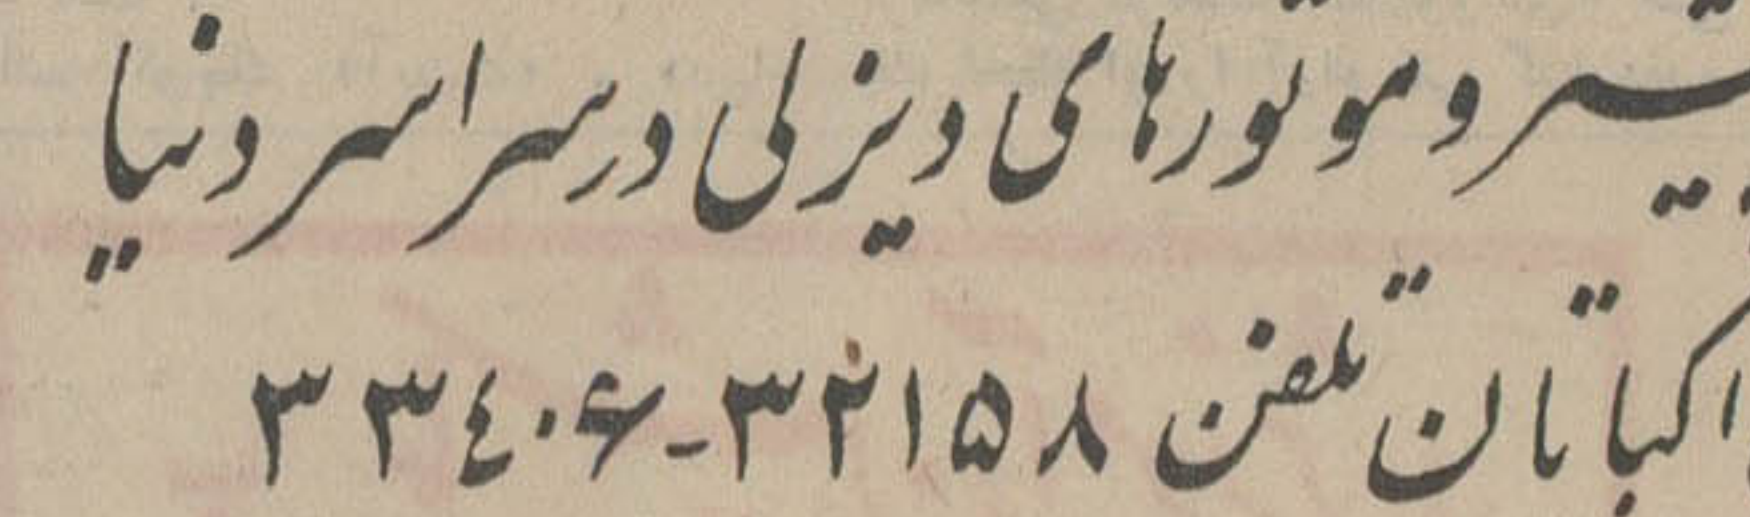 و موتورهای دیزلی در سراسر دنیا
اکباتان تلفن ۳۲۱۵۸-۳۳۴۰۶